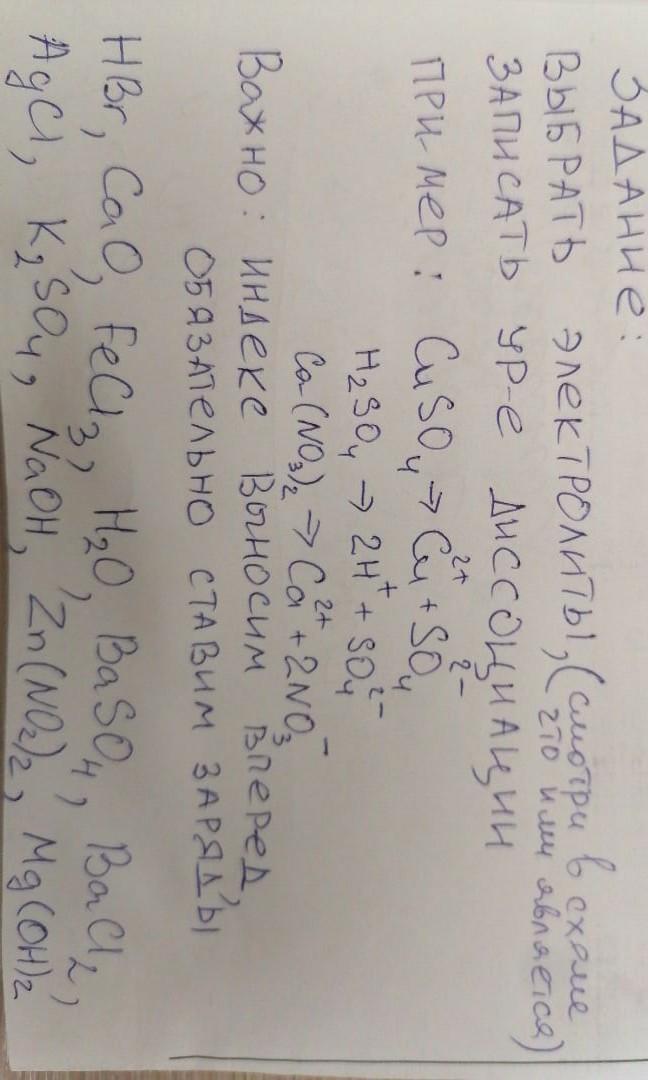 ЗАДАНИЕ:
ВЫБРАТЬ ЭЛЕКТРОЛИТЫ, (смотри в схеме
что ими является)
ЗАПИСАТЬ УР-Е ДИССОЦИАЦИИ
ПРИМЕР: CuSO₄ → Cu²⁺ + SO₄²⁻
H₂SO₄ → 2H⁺ + SO₄²⁻
Ca(NO₃)₂ → Ca²⁺ + 2NO₃⁻
Важно: ИНДЕКС ВЫНОСИМ ВПЕРЕД,
ОБЯЗАТЕЛЬНО СТАВИМ ЗАРЯДЫ
HBr, CaO, FeCl₃, H₂O, BaSO₄, BaCl₂,
AgCl, K₂SO₄, NaOH, Zn(NO₃)₂, Mg(OH)₂